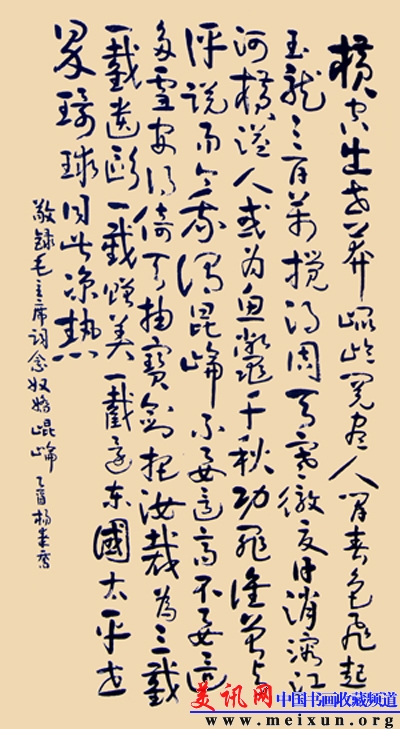 横空出世莽崐崘阅尽人间春色飛起
玉龍三百萬搅得周天寒徹夏日消溶江
河横溢人或为鱼鳖千秋功罪谁曾与
评说而今我谓昆崘不要這高不要這
多雪安得倚天抽寶剑把汝裁为三截
一截遗欧一截赠美一截还东國太平世
界環球同此凉热
敬録毛主席词念奴娇崐崘 乙酉杨
美讯网 中国书画收藏频道
www.meixun.org